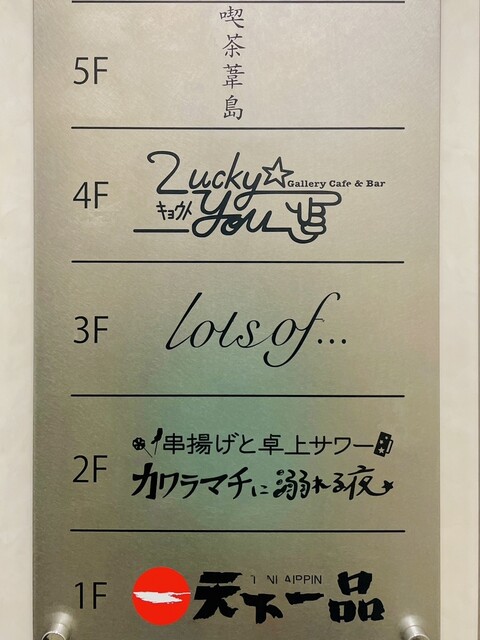 5F
喫茶葦島
4F
Lucky☆
Gallery Cafe & Bar
キョウト
you
3F
lots of...
2F
串揚げと卓上サワー
カワラマチに溺れる夜
1F
天下一品